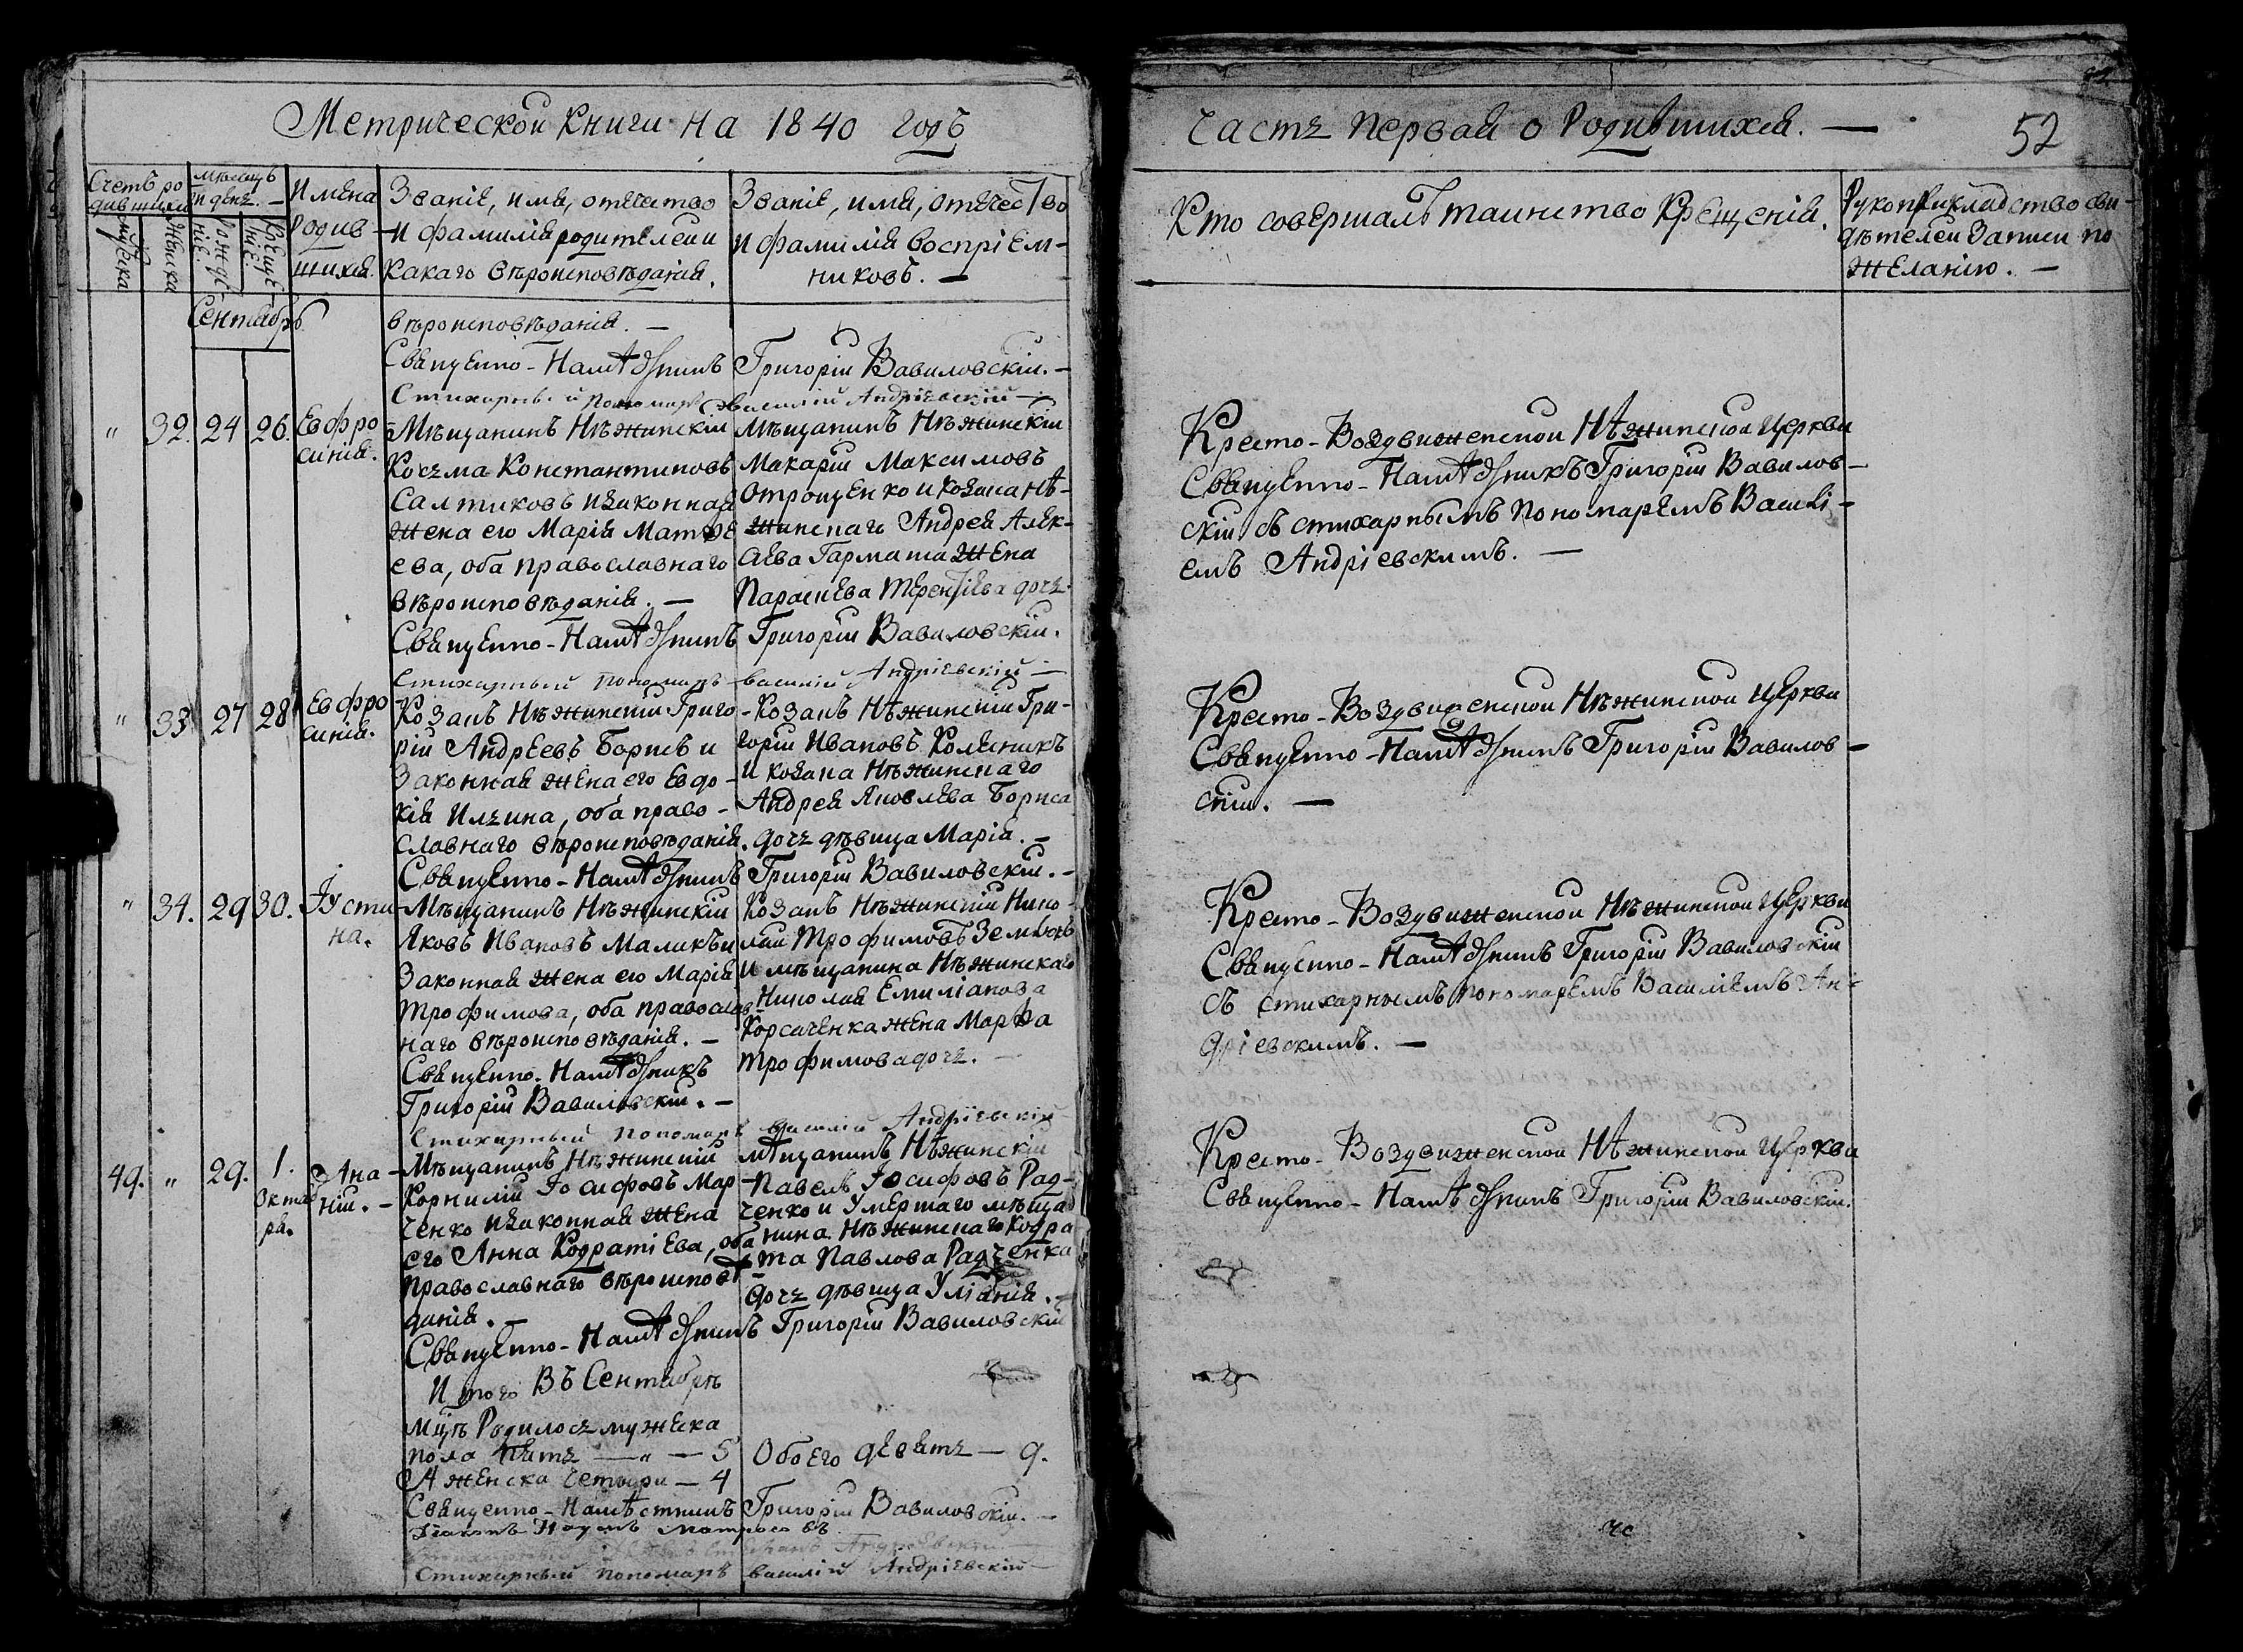 Метрической Книги на 1840 годъ
Счетъ ро
дившихся
мѣсяцъ
и день. —
Имена
Родив
шихся.
Званіе, имя, отчество
и фамилія родителей и
какаго вѣроисповѣданія.
Званіе, имя, отчество
и фамилія воспріем-
никовъ. —
мужеска
женска
рожде
ніе
креще
ніе
Сентябрь
вѣроисповѣданія. —
Священно-Намѣстникъ Григорій Вавиловскій. —
Стихарный Пономарь Василій Андріевскій —
" 32. 24 26. Евфро
синія.
Мѣщанинъ Нѣжинскій
Козьма Константиновъ
Салтиковъ и законная
жена его Марія Матфе
ева, оба православнаго
вѣроисповѣданія. —
Мѣщанинъ Нѣжинскій
Макарій Максимовъ
Отрощенко и козака Нѣ-
жинскаго Андрея Алек-
сѣева Гармаша жена
Параскева Терентіева дочь
Священно-Намѣстникъ Григорій Вавиловскій.
Стихарный Пономарь Василій Андріевскій —
" 33. 27 28 Евфро
синія.
Козакъ Нѣжинскій Григо-
рій Андреевъ Борисъ и
Законная жена его Евдо-
кія Ильина, оба право-
славнаго вѣроисповѣданія.
Козакъ Нѣжинскій Гри-
горій Ивановъ Колесникъ
и козака Нѣжинскаго
Андрея Яковлева Бориса
дочь дѣвица Марія. —
Священно-Намѣстникъ Григорій Вавиловскій. —
" 34. 29 30. Іусти
на.
Мѣщанинъ Нѣжинскій
Яковъ Ивановъ Маликъ и
Законная жена его Марія
Трофимова, оба православ
наго вѣроисповѣданія. —
Священно-Намѣстникъ
Григорій Вавиловскій. —
Козакъ Нѣжинскій Нико-
лай Трофимовъ
и мѣщанина Нѣжинскаго
Николая Емиліанова
Корсаченка жена Марфа
Трофимова дочь. —
Стихарный Пономарь Василій Андріевскій
49. " 29. 1.
Октяб
ря.
Ана-
ній. —
Мѣщанинъ Нѣжинскій
Корнилій Іосифовъ Мар-
ченко и законная жена
его Анна Кодратіева, оба
православнаго вѣроисповѣ
данія. —
мѣщанинъ Нѣжинскій
Павелъ Іосифовъ Рад-
ченко и умершаго мѣща
нина Нѣжинскаго Кодра
та Павлова Радченка
дочь дѣвица Уліанія. —
Священно-Намѣстникъ Григорій Вавиловскій
Итого Въ Сентябрѣ
мцѣ Родилось мужеска
пола пять — " — 5
А женска четыри — 4
Обоего девять — 9.
Священно-Намѣстникъ Григорій Вавиловскій. —
Діаконъ Наумъ
Стихарный Пономарь Василій Андріевскій —
Часть Первая о Родившихся. —
52
Кто совершалъ таинство Крещенія.
Рукоприкладство сви-
дѣтелей записи по
желанію. —
Кресто-Воздвиженской Нѣжинской Церкви
Священно-Намѣстникъ Григорій Вавилов-
скій съ стихарнымъ пономаремъ Василі-
емъ Андріевскимъ. —
Кресто-Воздвиженской Нѣжинской Церкви
Священно-Намѣстникъ Григорій Вавилов-
скій. —
Кресто-Воздвиженской Нѣжинской Церкви
Священно-Намѣстникъ Григорій Вавиловскій
съ стихарнымъ пономаремъ Василіемъ Ан-
дріевскимъ. —
Кресто-Воздвиженской Нѣжинской Церкви
Священно-Намѣстникъ Григорій Вавиловскій.